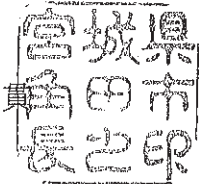 宮城県
員
角田市
長之印